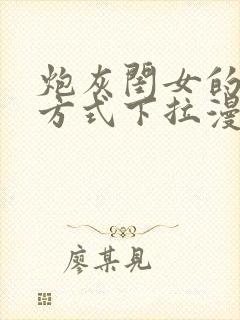 炮灰闺女的
方式下拉漫
廖某见